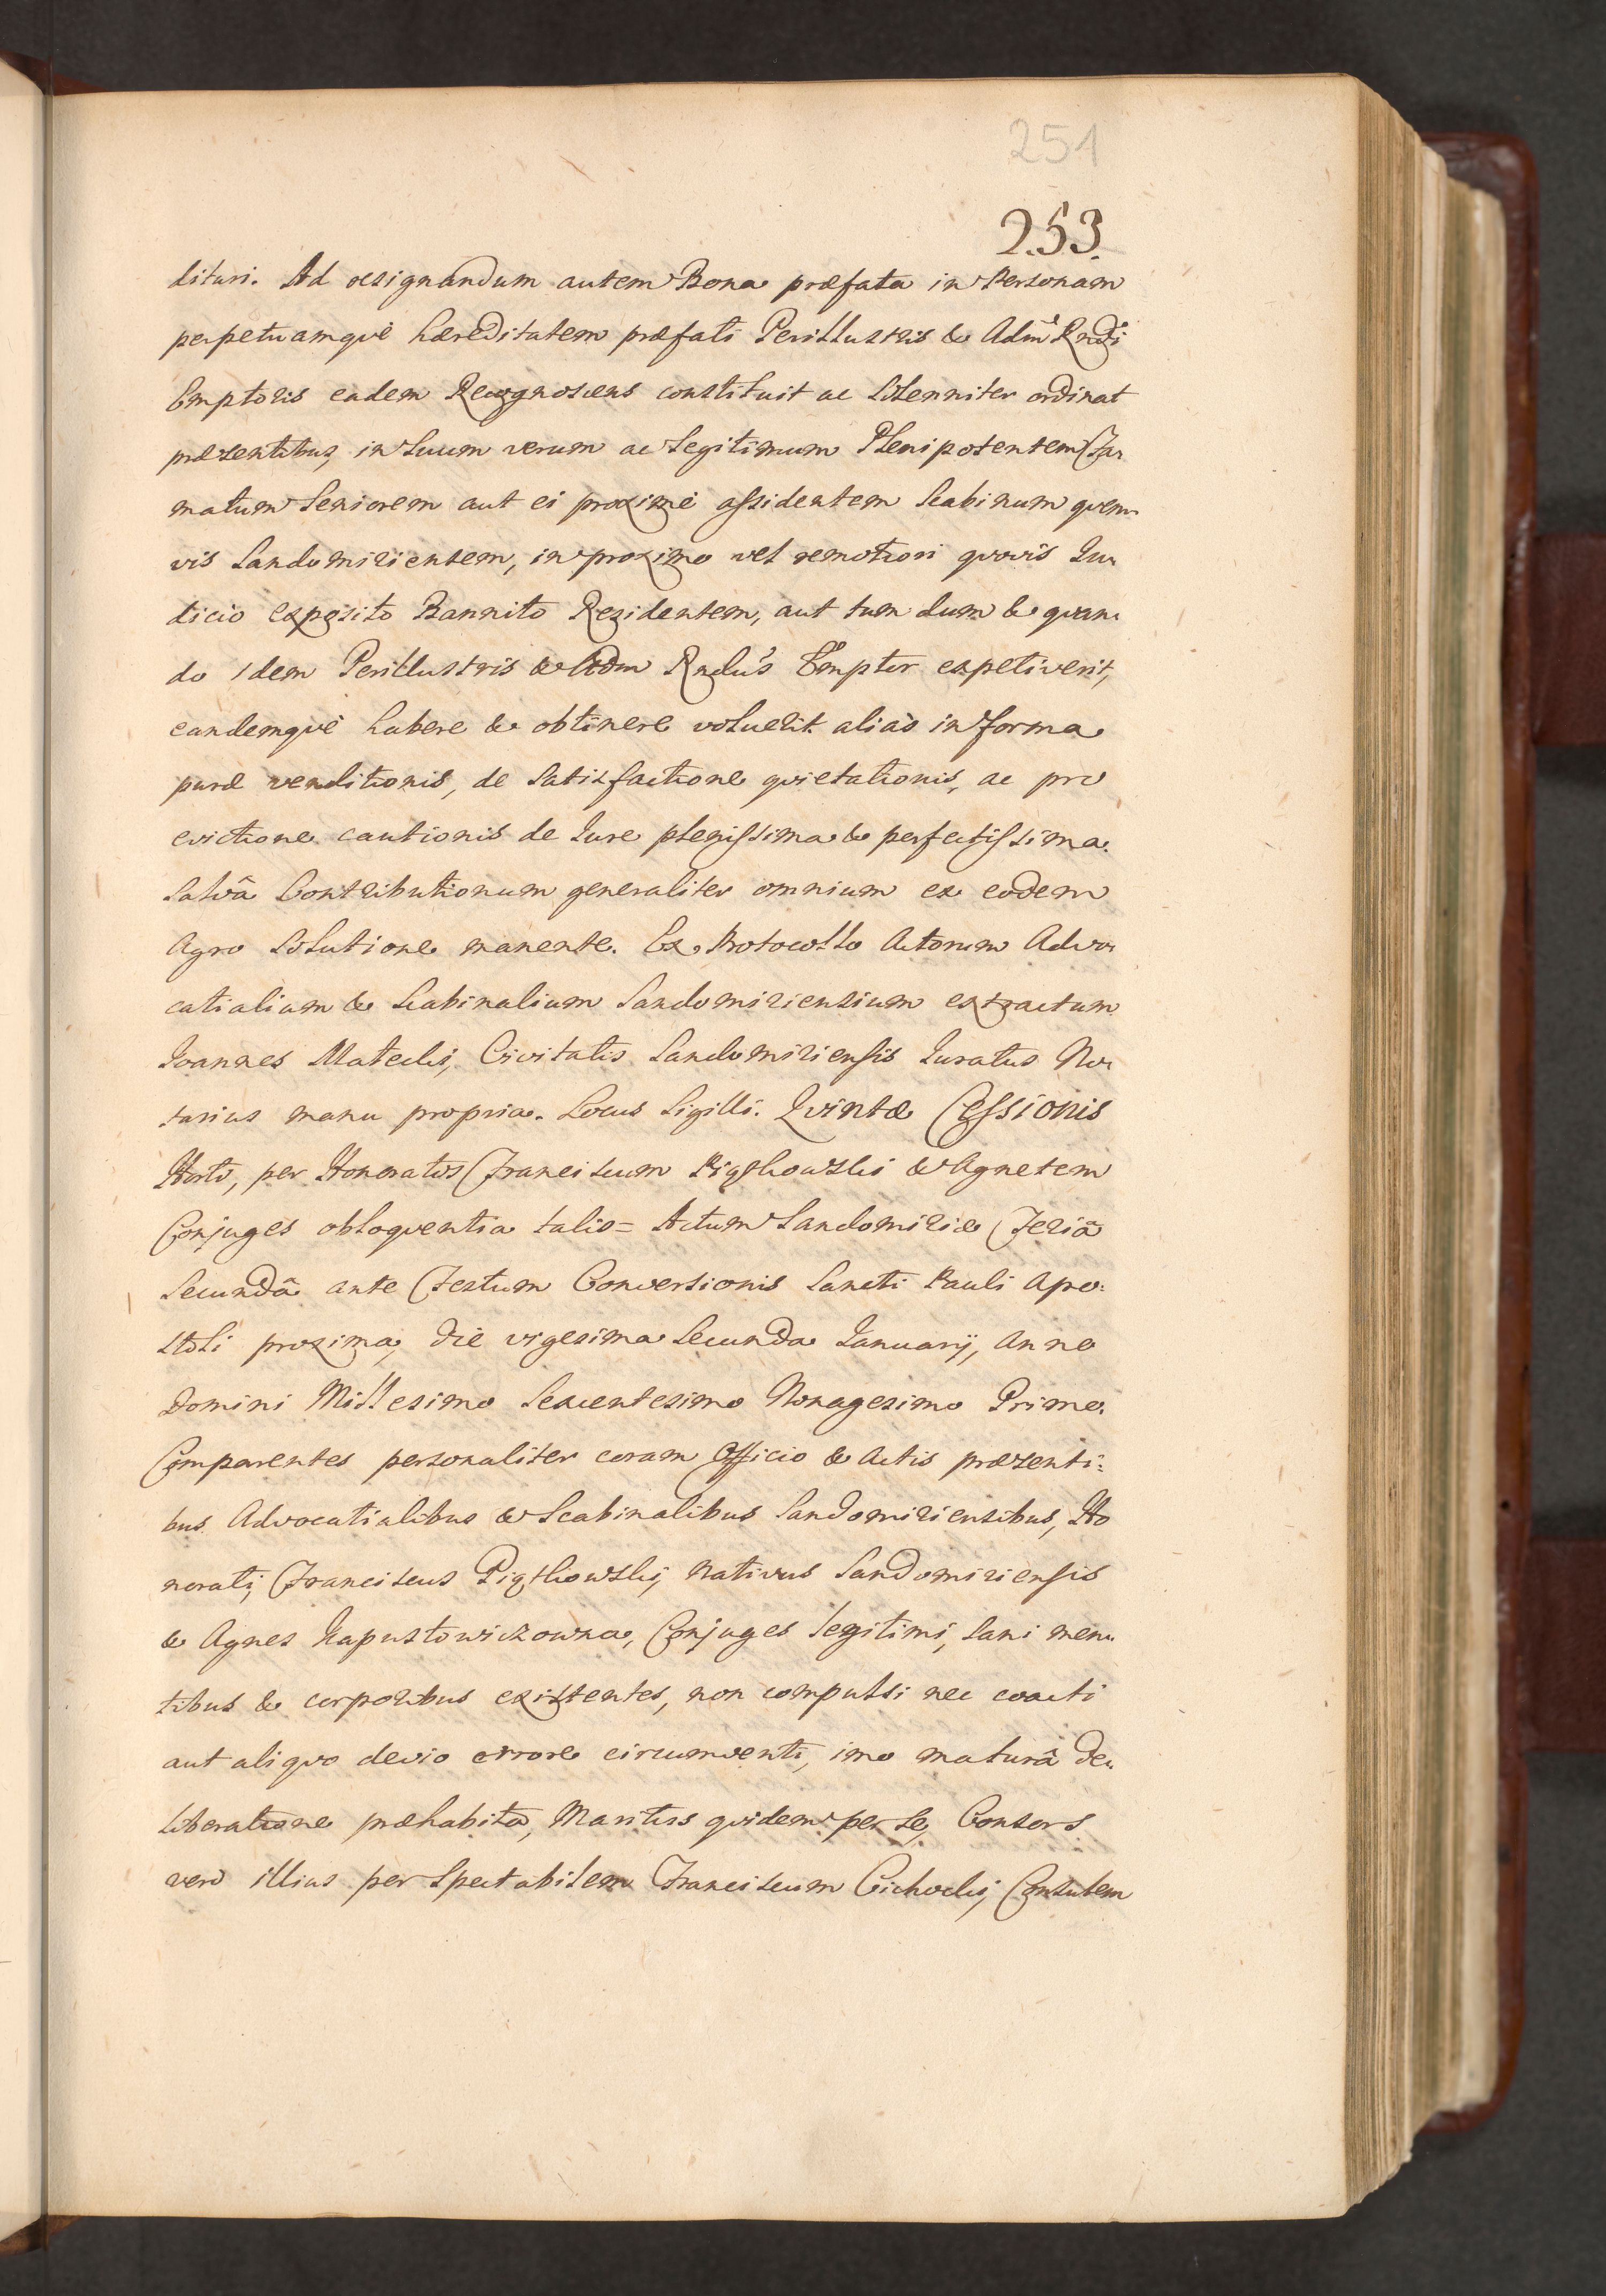 251
253.
dituri. Ad resignandum autem Bona præfata in Personam
perpetuamqvè hæreditatem præfati Perillustris & Adm̃ Rndi
Emptoris eadem Recognoscens constituit ac Solenniter ordinat
præsentibus, in Suum verum ac Legitimum Plenipotentem Fa-
matum Seniorem aut ei proximè assidentem Scabinum qvem-
vis Sandomiriensem, in proximo vel remotiori qvovis Iu-
dicio exposito Bannito Residentem, aut tum dum & qvan-
do Idem Perillustris & Adm Rndus Emptor expetiverit,
eandemqvè habere & obtinere voluerit aliàs in forma
puræ venditionis, de Satisfactione qvietationis, ac pro
evictione cautionis de Iure plenissima & perfectissima.
Salvâ Contributionum generaliter omnium ex eodem
Agro Solutione manente. Ex Protocollo Actorum Advo-
catialium & Scabinalium Sandomiriensium extractum
Ioannes Matecki, Civitatis Sandomiriensis Iuratus No-
tarius manu propria. Locus Sigilli. Qvintæ Cessionis
Horti, per Honoratos Franciscum & Agnetem
Conjuges obloqventia talis= Actum Sandomiriæ Feriâ
Secundâ ante Festum Conversionis Sancti Pauli Apo:
stoli proxima, die vigesima Secunda Ianuarij, Anno
Domini Millesimo Sexcentesimo Nonagesimo Primo.
Comparentes personaliter coram Officio & Actis præsenti:
bus Advocatialibus & Scabinalibus Sandomiriensibus, Ho
norati, Franciscus nativus Sandomiriensis
& Agnes Kapustowiczowna, Conjuges legitimi, Sani men-
tibus & corporibus existentes, non compulsi nec coacti
aut aliqvo devio errore circumventi, imo maturâ de-
liberatione præhabita, Maritus qvidem per se, Consors
vero illius per Spectabilem Franciscum Cichocki, Consulem